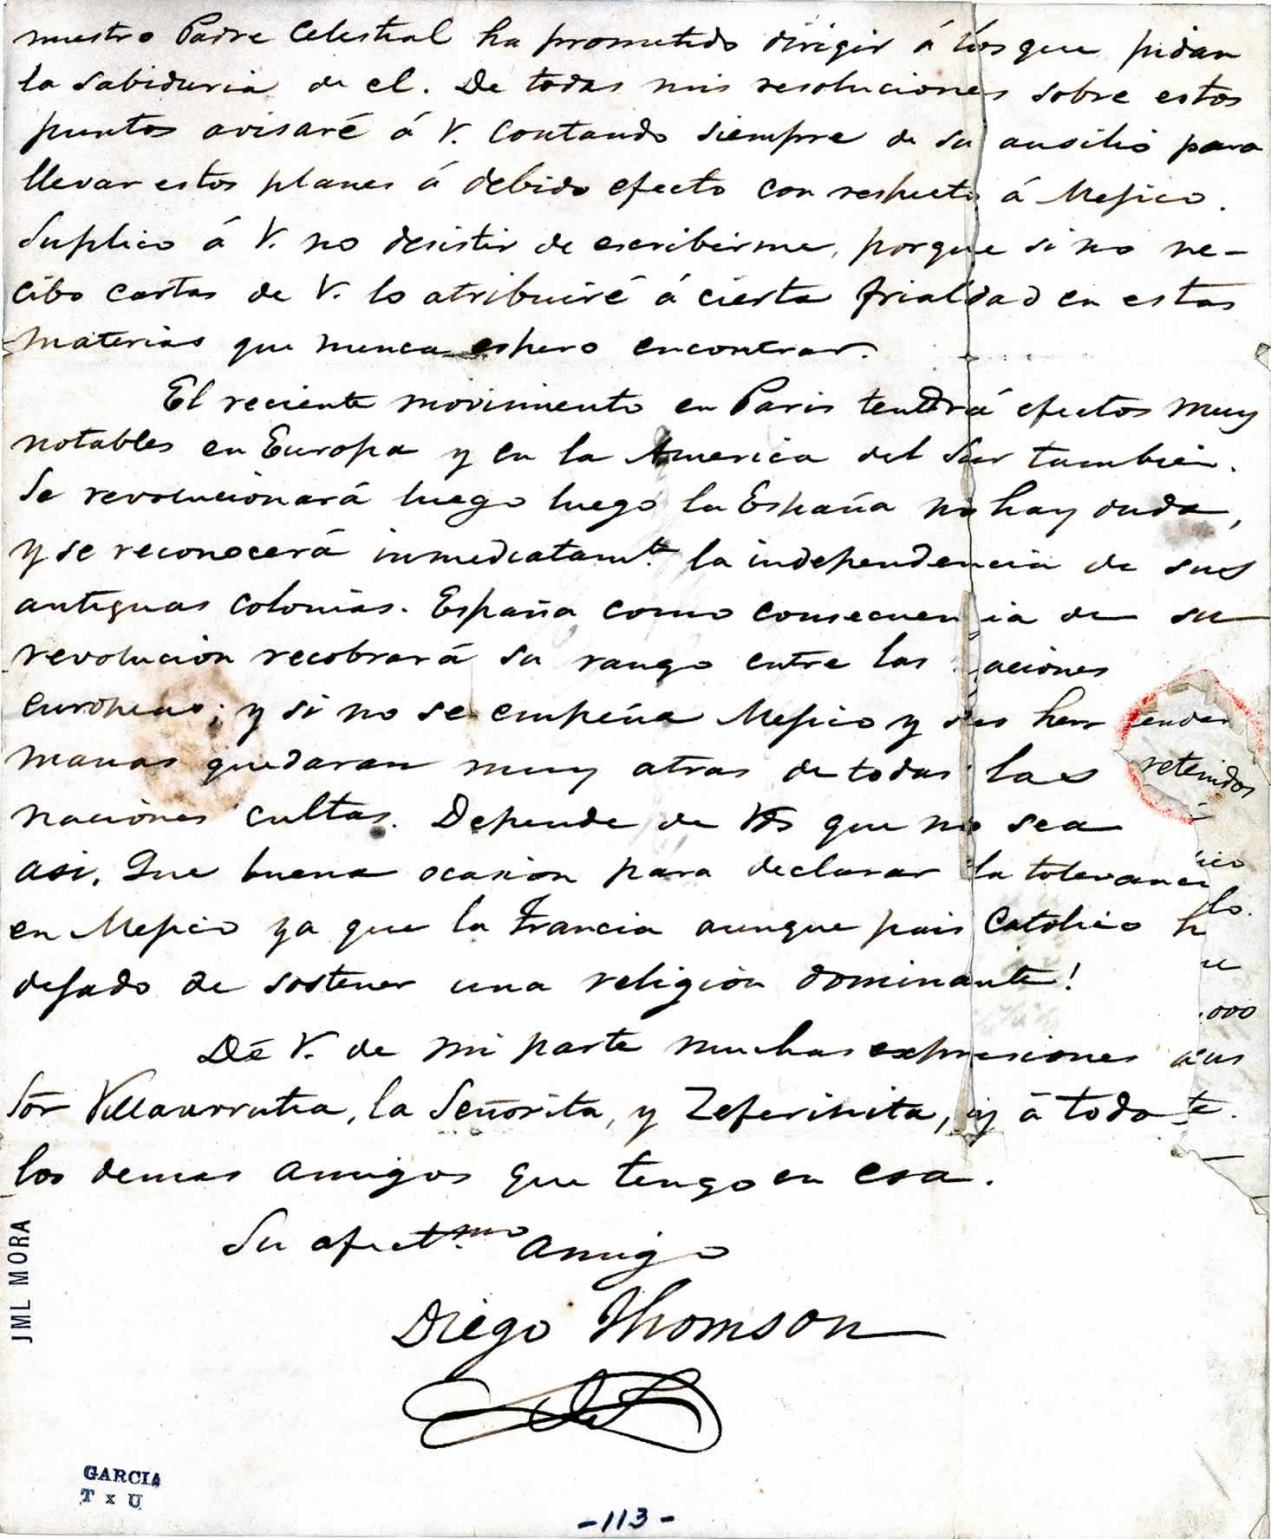 nuestro Padre Celestial ha prometido dirigir á los que pidan
la sabiduria de el. De todas mis resoluciones sobre estos
puntos avisaré á V. contando siempre de su ausilio para
llevar estos planes á debido efecto con respecto á Mejico.
Suplico á V. no desistir de escribirme, porque si no re-
cibo cartas de V. lo atribuiré á cierta frialdad en estas
materias que nunca espero encontrar.
El reciente movimiento en Paris tendrá efectos muy
notables en Europa y en la America del Sur tambien.
Se revolucionará luego luego la España no hay duda,
y se reconocerá inmediatamte. la independencia de sus
antiguas colonias. España como consecuencia de su
revolucion recobrará su rango entre las naciones
europeas; y si no se empeña Mejico y sus her
manas quedaran muy atras de todas las
retenidos
naciones cultas. Depende de Vds que no sea
asi. Que buena ocasion para declarar la toleranci
en Mejico ya que la Francia aunque pais Catolico h
dejado de sostener una religion dominante!
.000
Dé V. de mi parte muchas expresiones á
Sōr Villaurrutia, la Señorita, y Zeferinita, y á todo
los demas amigos que tengo en esa.
Su afectmo. amigo
Diego Thomson
JML MORA
GARCIA
T x U
-113-